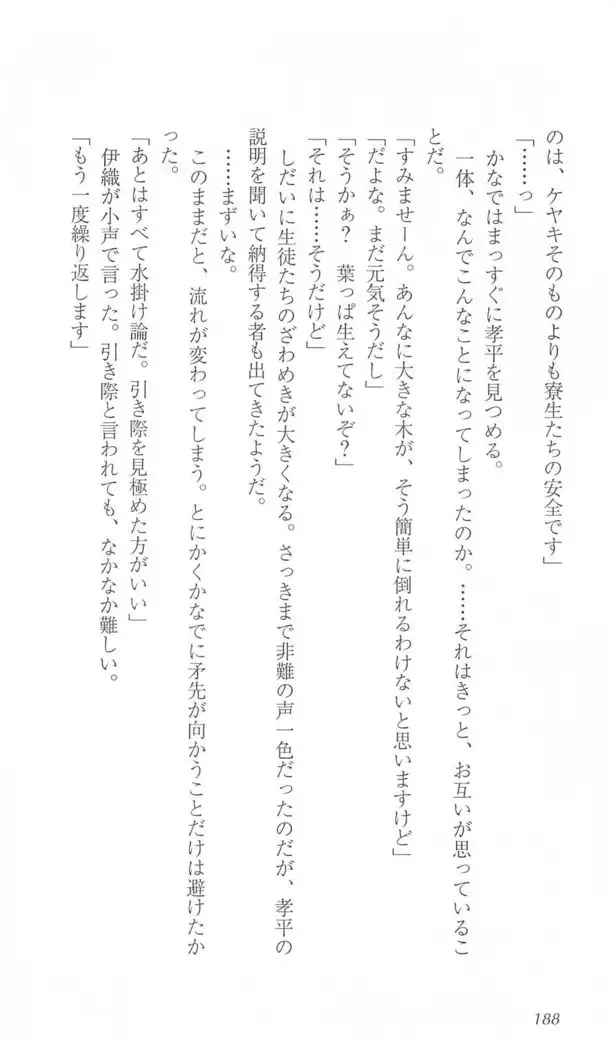 のは、ケヤキそのものよりも寮生たちの安全です」
「……っ」
かなではまっすぐに孝平を見つめる。
一体、なんでこんなことになってしまったのか。……それはきっと、お互いが思っているこ
とだ。
「すみませーん。あんなに大きな木が、そう簡単に倒れるわけないと思いますけど」
「だよな。まだ元気そうだし」
「そうかぁ？　葉っぱ生えてないぞ？」
「それは……そうだけど」
しだいに生徒たちのざわめきが大きくなる。さっきまで非難の声一色だったのだが、孝平の
説明を聞いて納得する者も出てきたようだ。
……まずいな。
このままだと、流れが変わってしまう。とにかくかなでに矛先が向かうことだけは避けたか
った。
「あとはすべて水掛け論だ。引き際を見極めた方がいい」
伊織が小声で言った。引き際と言われても、なかなか難しい。
「もう一度繰り返します」
188